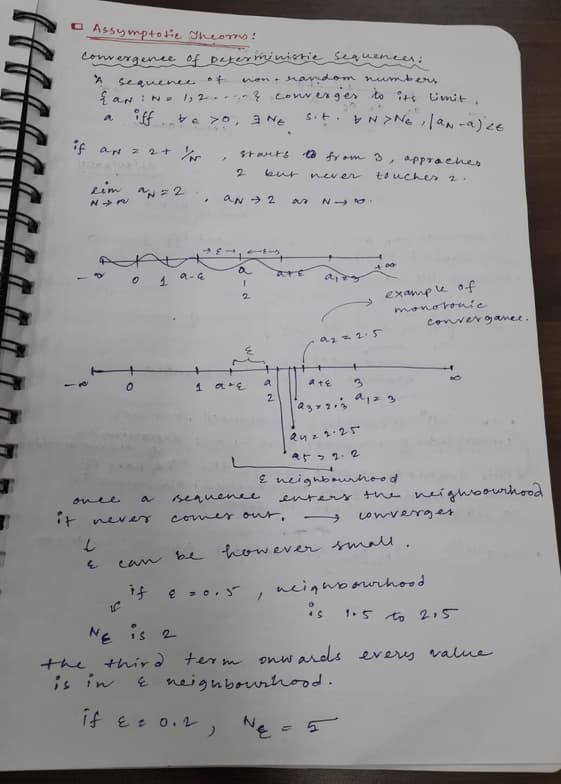 Assymptotic Theorms:
Convergence of Deterministic Sequences:
A sequence of non-random numbers
{aN : N = 1, 2 ..... } converges to its limit,
a iff ∀ ε > 0, ∃ Nε s.t. ∀ N > Nε, |aN - a| < ε
if aN = 2 + 1/N , starts from 3, approaches
2 but never touches 2.
lim N→∞ aN = 2 , aN → 2 as N → ∞.
→ ε ← ← ε →
-∞ 0 1 a-ε a a+ε a1=3 +∞
2
example of
monotonic
convergance.
ε a2 = 2.5
-∞ 0 1 a+ε a a+ε 3 ∞
2 a3 = 2.3 a1 = 3
a4 = 2.25
a5 = 2.2
ε neighbourhood
once a sequence enters the neighbourhood
it never comes out. → converges
ε can be however small.
if ε = 0.5, neighbourhood
is 1.5 to 2.5
Nε is 2
the third term onwards every value
is in ε neighbourhood.
if ε = 0.2, Nε = 5